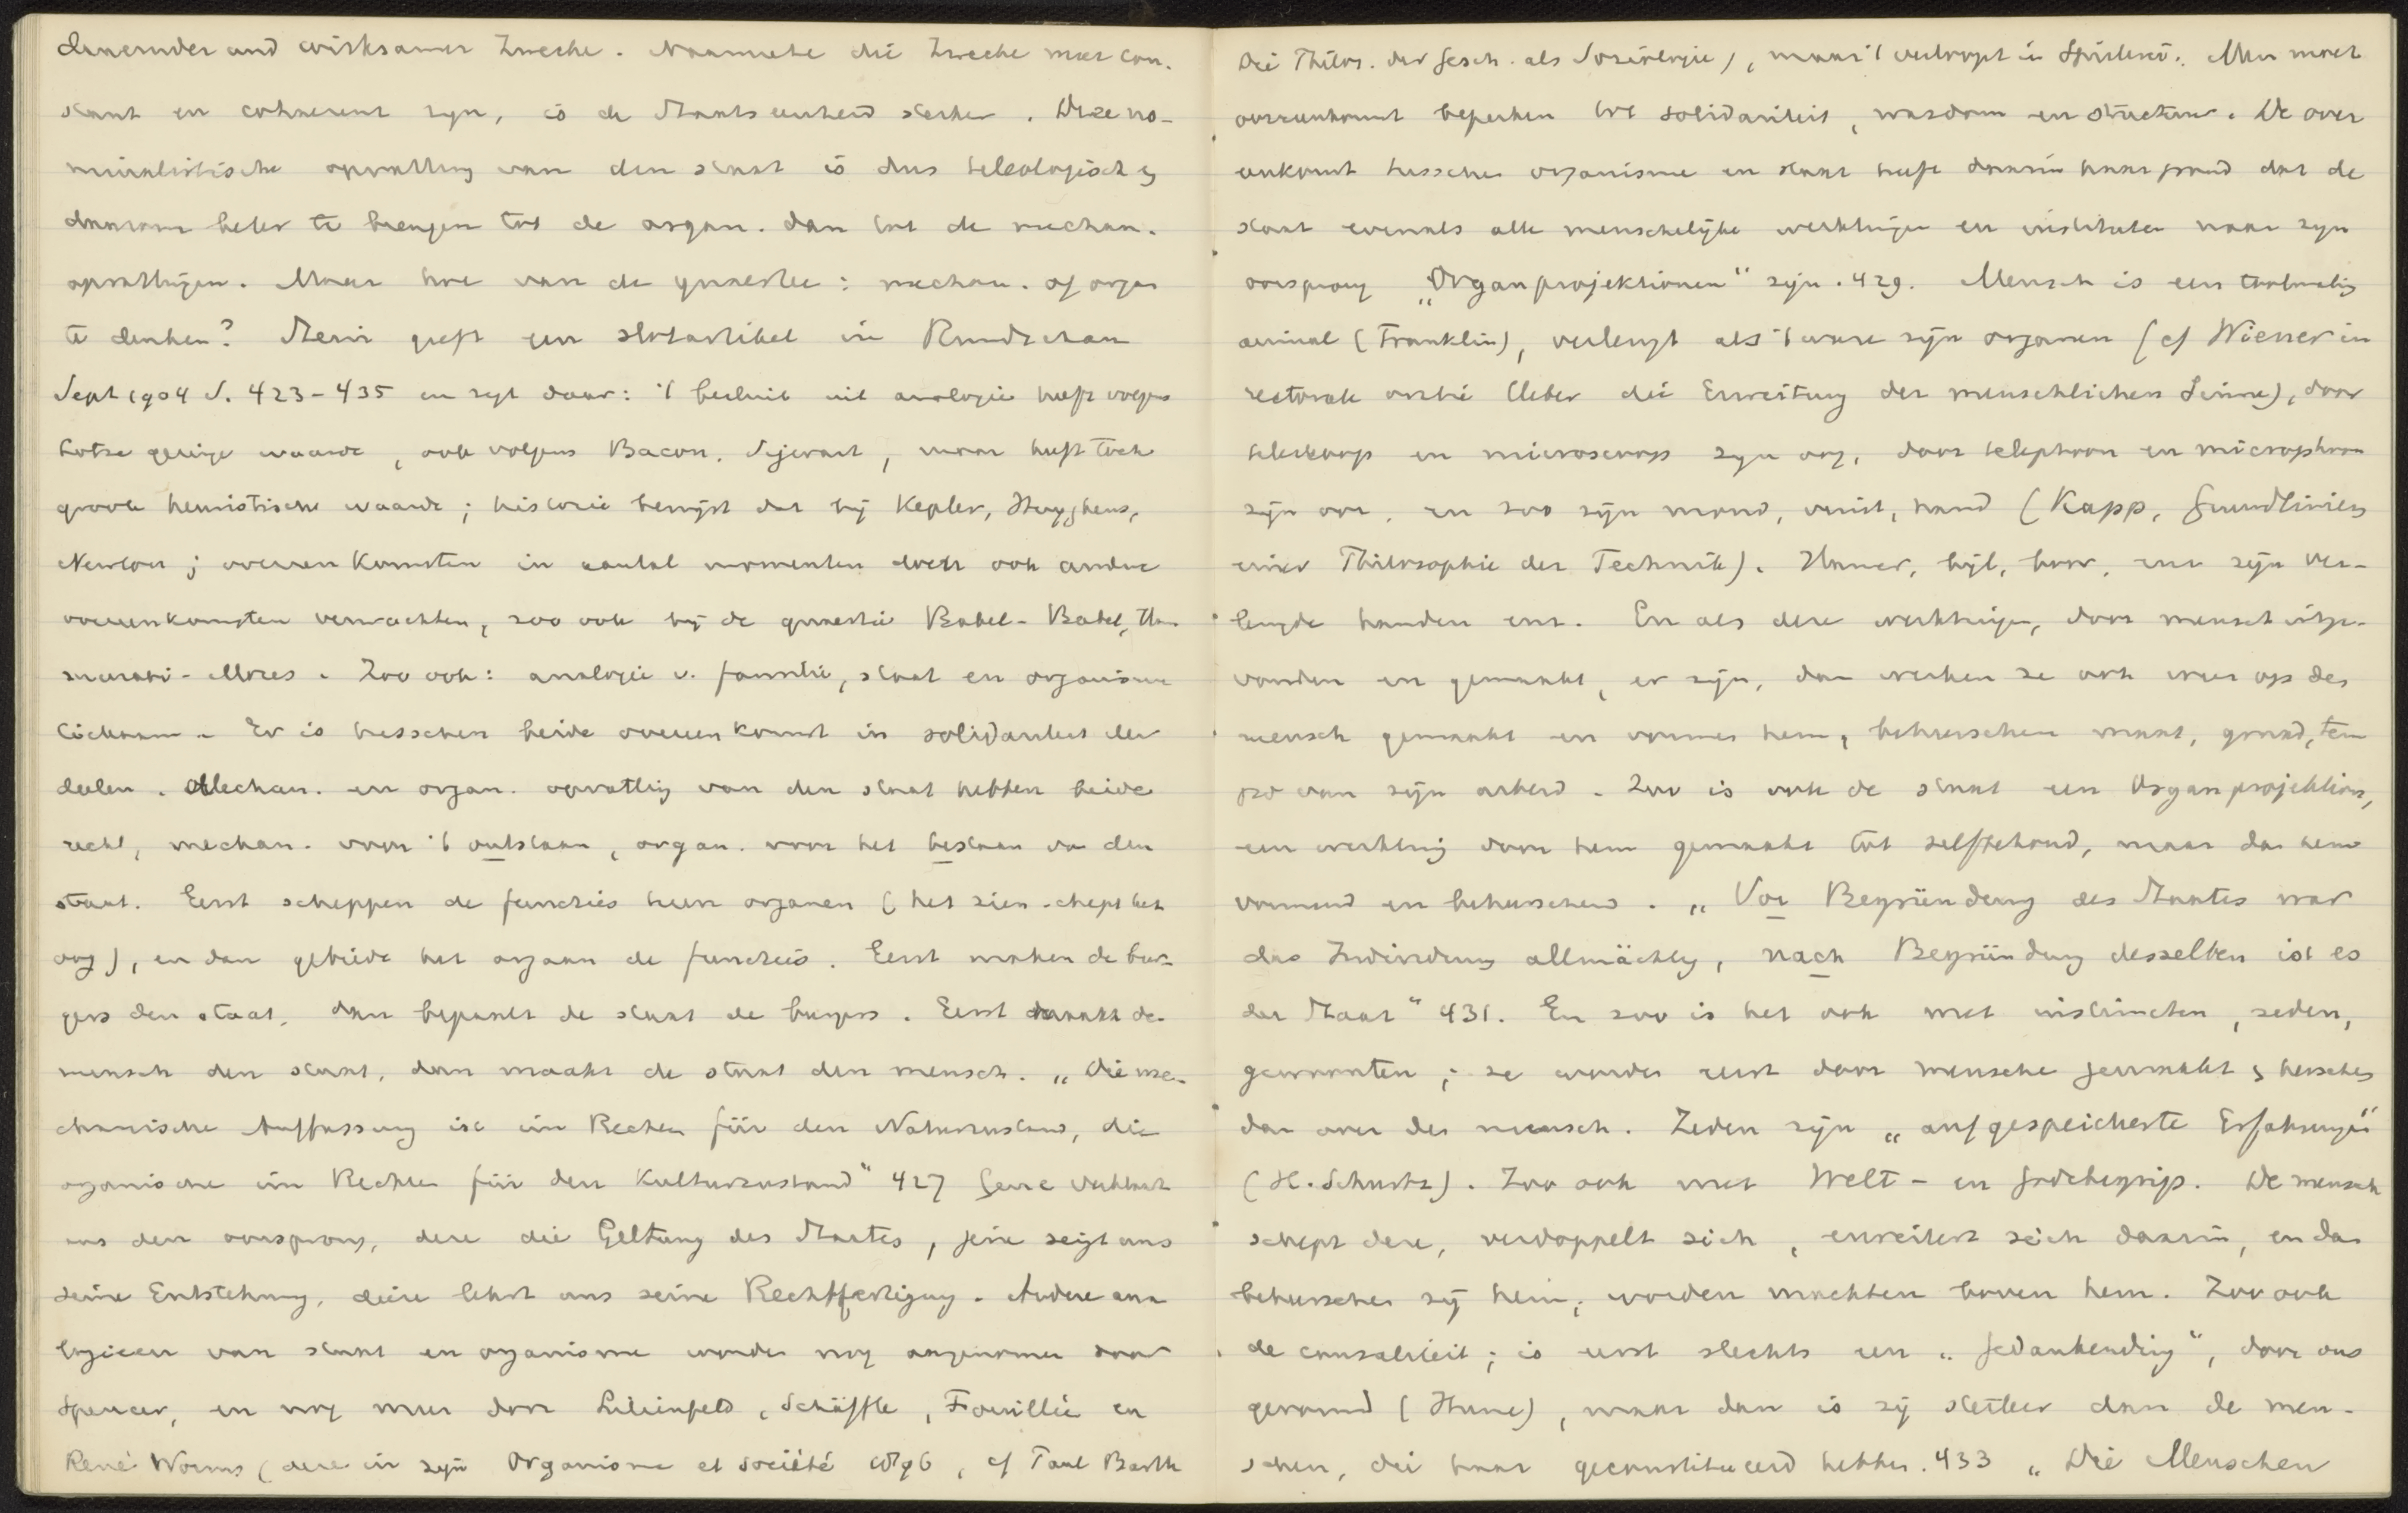 dauernder und wirksamer Zwecke. Naarmate die Zwecke meer con-
stant en cohaerent zyn, is de Staatseenheid sterker. Deze no-
minalistische opvatting van den staat is dus teleologisch &
daarom beter te brengen tot de organ. dan tot de mechan.
opvattingen. Maar hoe van de quaestie: mechan. of organ
te denken? Stein geeft een slotartikel in Rundschau
Sept 1904 S. 423-435 en zegt daar: 't besluit uit analogie heeft volgens
Lotze geringe waarde, ook volgens Bacon, Sigwart, maar heeft toch
groote heuristische waarde; historie bewijst dat bij Kepler, Huyghens,
Newton; overeenkomsten in aantal momenten doen ook andere
overeenkomsten verwachten, zoo ook bij de quaestie Babel-Bibel, Ham
murabi-Mozes. Zoo ook: analogie v. familie, staat en organisme
lichaam. Er is tusschen beide overeenkomst in solidariteit der
deelen. Mechan. en organ. opvatting van den staat hebben beide
recht, mechan. voor 't ontstaan, organ. voor het bestaan van den
staat. Eerst scheppen de functies hun organen (het zien schept het
oog), en dan gebiedt het orgaan de functies. Eerst maken de bur-
gers den staat, dan bepaalt de staat de burgers. Eerst maakt de
mensch den staat, dan maakt de staat den mensch. „Die me-
chanische Auffassung ist im Rechte für den Naturzustand, die
organische im Rechte für den Kulturzustand" 427 Gene verklaart
ons den oorsprong, deze die Geltung des Staates, jene zeigt uns
seine Entstehung, diese lehrt uns seine Rechtfertigung. Andere ana
logieen van staat en organisme worden nog aangenomen door
Spencer, en nog meer door Lilienfeld, Schäffle, Fouillée en
René Worms (deze in zijn Organisme et Société 1896, cf Paul Barth
Die Philos. der Gesch. als Soziologie), maar 't verloopt in Spielerei. Men moet
overeenkomst beperken tot solidariteit, wasdom en structuur. De over
eenkomst tusschen organisme en staat heeft daarin haar grond dat de
staat evenals alle menschelijke werktuigen en instituten naar zijn
oorsprong „Organprojektionen" zijn. 429. Mensch is een toolmaking
animal (Franklin), verlengt als 't ware zijn organen (cf Wiener in
rectorale oratie Ueber die Erweitung der menschlichen Sinne), door
teleskoop en microscoop zijn oog, door telephoon en microphoon
zijn oor, en zoo zijn mond, vuist, hand (Kapp, Grundlinien
einer Philosophie der Technik). Hamer, bijl, boor, enz zijn ver-
lengde handen enz. En als deze werktuigen, door mensch uitge-
vonden en gemaakt, er zijn, dan werken ze ook weer op den
mensch gemaakt en vormen hem, beheerschen maat, graad, tem
po van zijn arbeid. Zoo is ook de staat een Organprojektion,
een werktuig door hem gemaakt tot zelfbehoud, maar dan hem
vormend en beheerschend. „Vor Begründung des Staates war
das Individuum allmächtig, nach Begründung desselben ist es
der Staat" 431. En zoo is het ook met instincten, zeden,
gewoonten; ze worden eerst door mensche gemaakt & heerschen
dan over den mensch. Zeden zijn „aufgespeicherte Erfahrungen"
(H. Schurtz). Zoo ook met Welt- en Godsbegrip. De mensch
schept deze, verdoppelt zich, erweitert sich daarin, en dan
beheerschen zij hem, worden machten boven hem. Zoo ook
de causaliteit; is eerst slechts een „Gedankending", door ons
gevormd (Hume), maar dan is zij sterker dan de men-
schen, die haar geconstitueerd hebben. 433 „Die Menschen